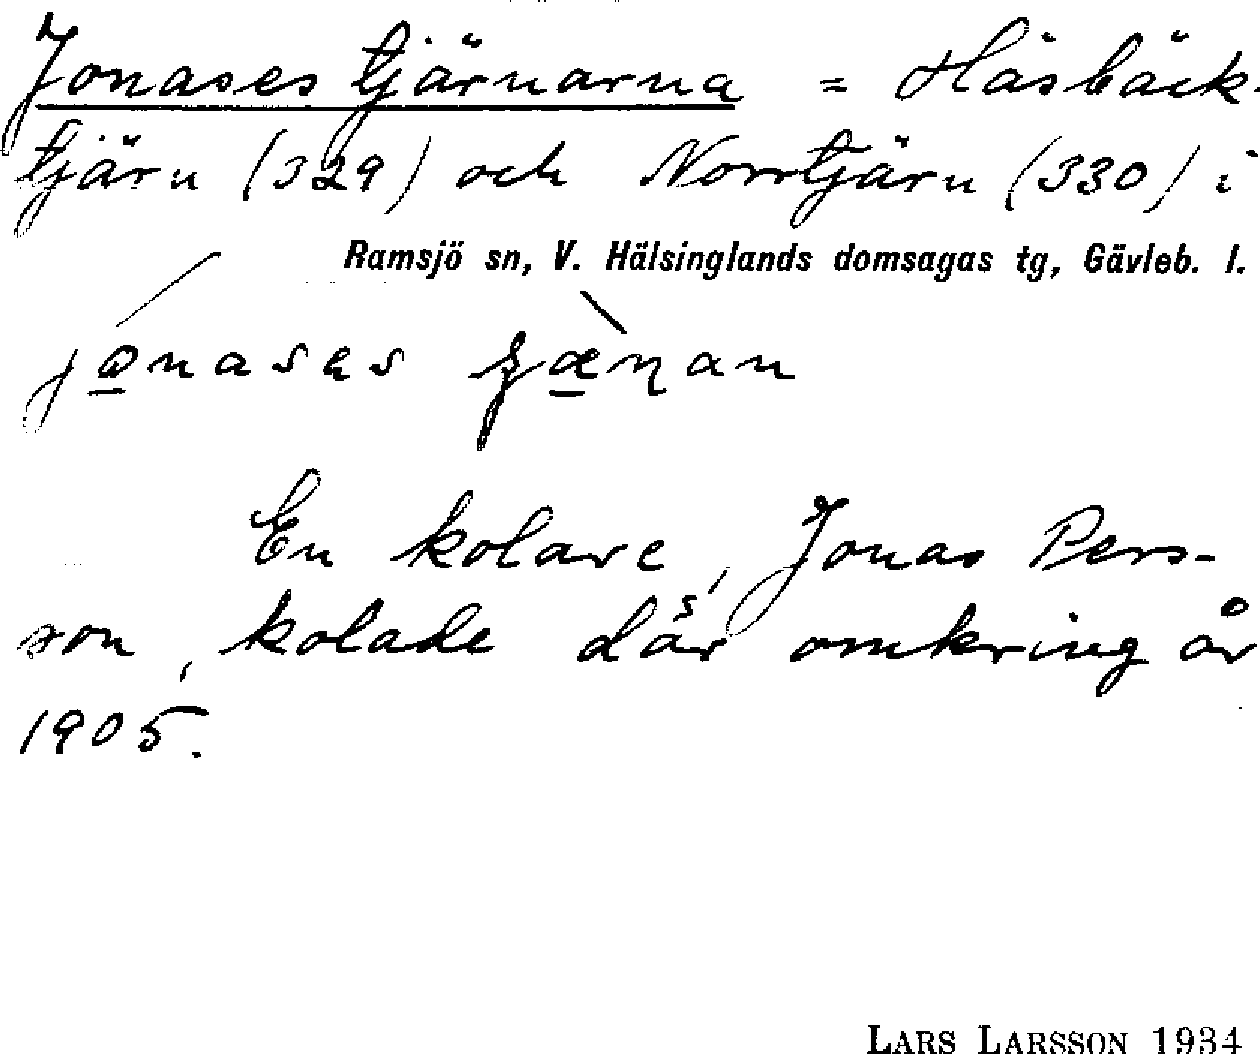 Jonases tjärnarna = Häsbäck-
tjärn (329) och Norrtjärn (330) i
Ramsjö sn, V. Hälsinglands domsagas tg, Gävleb. l.
En kolare, Jonas Pers-
son, kolade där omkring år
1905.
LARS LARSSON 1934